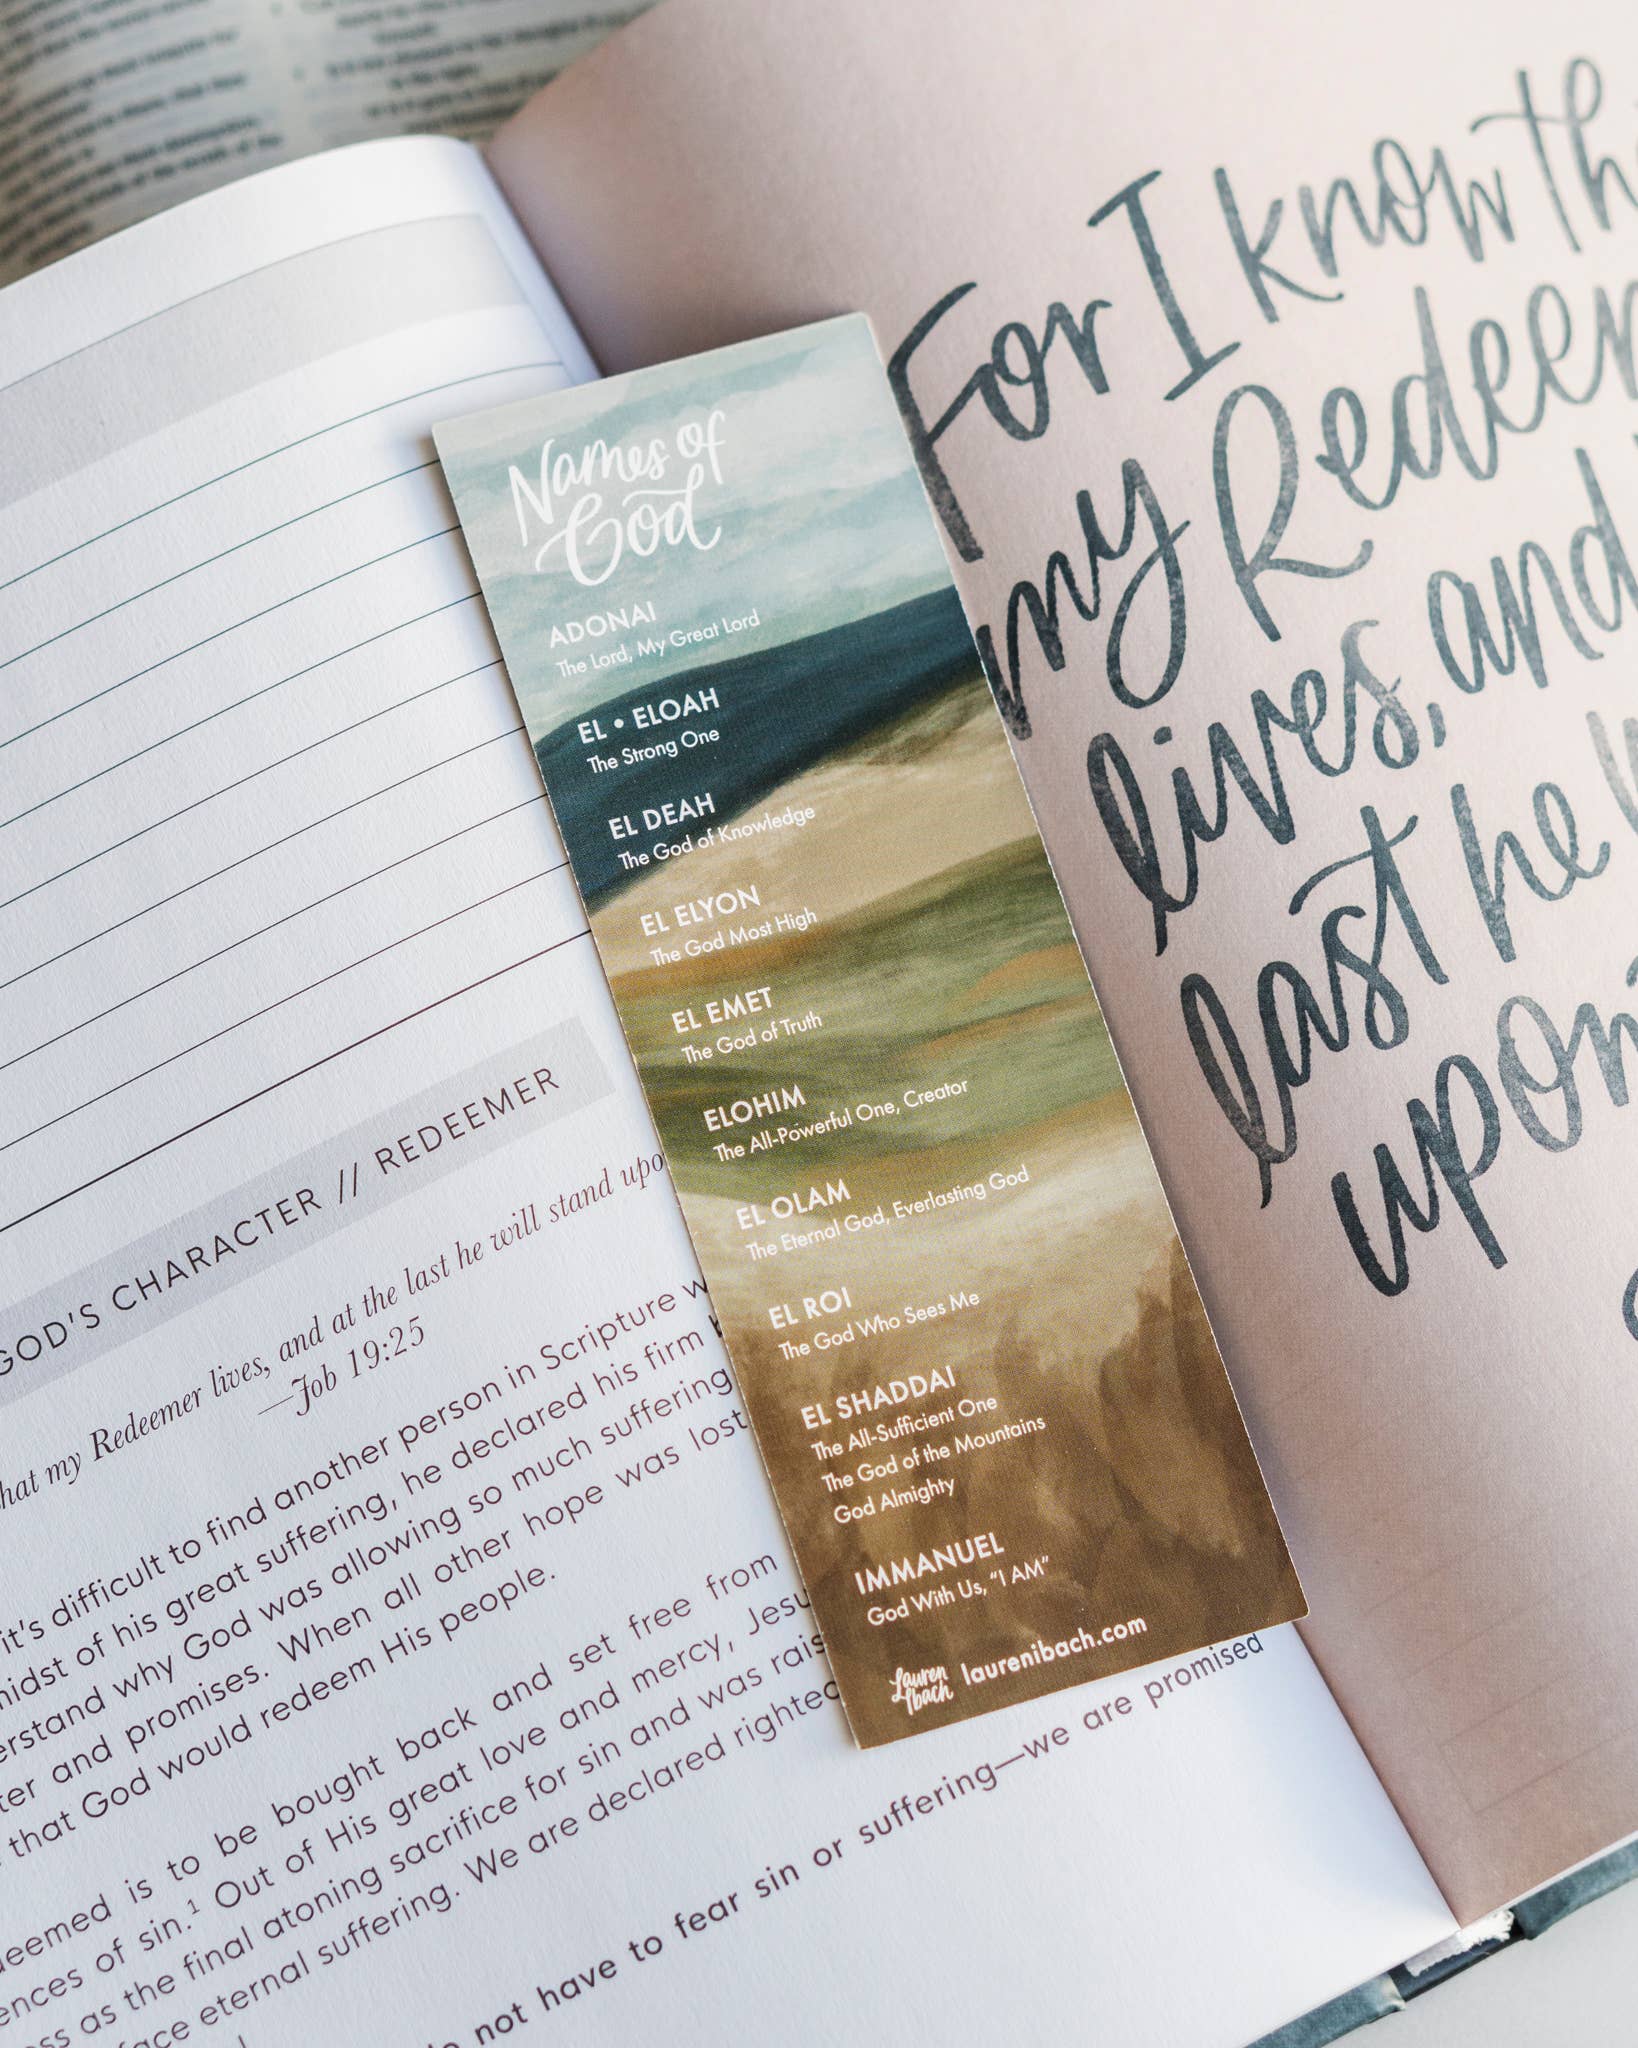 Names of
God
ADONAI
The Lord, My Great Lord
EL • ELOAH
The Strong One
EL DEAH
The God of Knowledge
EL ELYON
The God Most High
EL EMET
The God of Truth
ELOHIM
The All-Powerful One, Creator
EL OLAM
The Eternal God, Everlasting God
EL ROI
The God Who Sees Me
EL SHADDAI
The All-Sufficient One
The God of the Mountains
God Almighty
IMMANUEL
God With Us, “I AM”
Lauren
Ibach
laurenibach.com
GOD'S CHARACTER // REDEEMER
my Redeemer lives, and at the last he will stand
—Job 19:25
it's difficult to find another person in Scripture
of his great suffering, he declared his firm
why God was allowing so much suffering
and promises. When all other hope was lost
that God would redeem His people.
is to be bought back and set free from
of sin.¹ Out of His great love and mercy,
as the final atoning sacrifice for sin and was
eternal suffering. We are declared
not have to fear sin or suffering—we are promised
For I know
my
lives, and
last he
upon